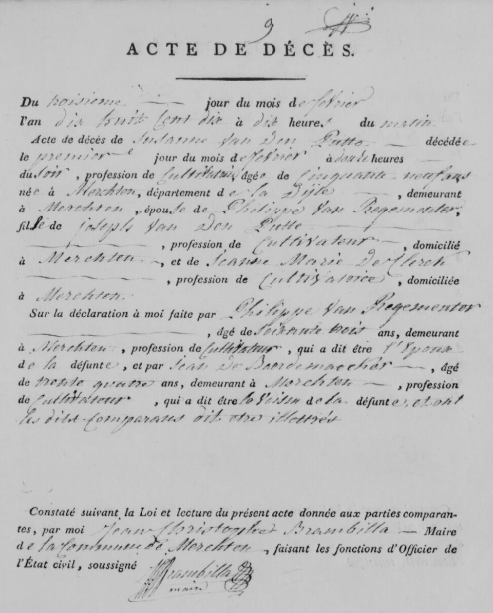 9
ACTE DE DÉCÈS.
Du troisieme jour du mois de fevrier
l'an dix huit cent dix à dix heures du matin
Acte de décès de Susanne Van Den Putte décédée
le premier jour du mois de fevrier à heures
du soir, profession de Cultivateur âgée de cinquante neuf ans
née à Merchten, département de la Dyle, demeurant
à Merchten, épouse de Philippe Van Regemeter,
fille de joseph Van Den Putte
, profession de Cultivateur, domicilié
à Merchten, et de Jeanne Marie
, profession de Cultivatrice, domiciliée
à Merchten
Sur la déclaration à moi faite par Philippe Van Regementer
, âgé de soixante trois ans, demeurant
à Merchten, profession de Cultivateur, qui a dit être l'Epoux
de la défunte, et par Jean De, âgé
de trente quatre ans, demeurant à Merchten, profession
de Cultivateur, qui a dit être le voisin de la défunte, et ont
les dits Comparans dit etre illettrés
Constaté suivant la Loi et lecture du présent acte donnée aux parties comparan-
tes, par moi Jean Christophe Brambilla — Maire
de la Commune de Merchten, faisant les fonctions d'Officier de
l'État civil, soussigné Brambilla
maire